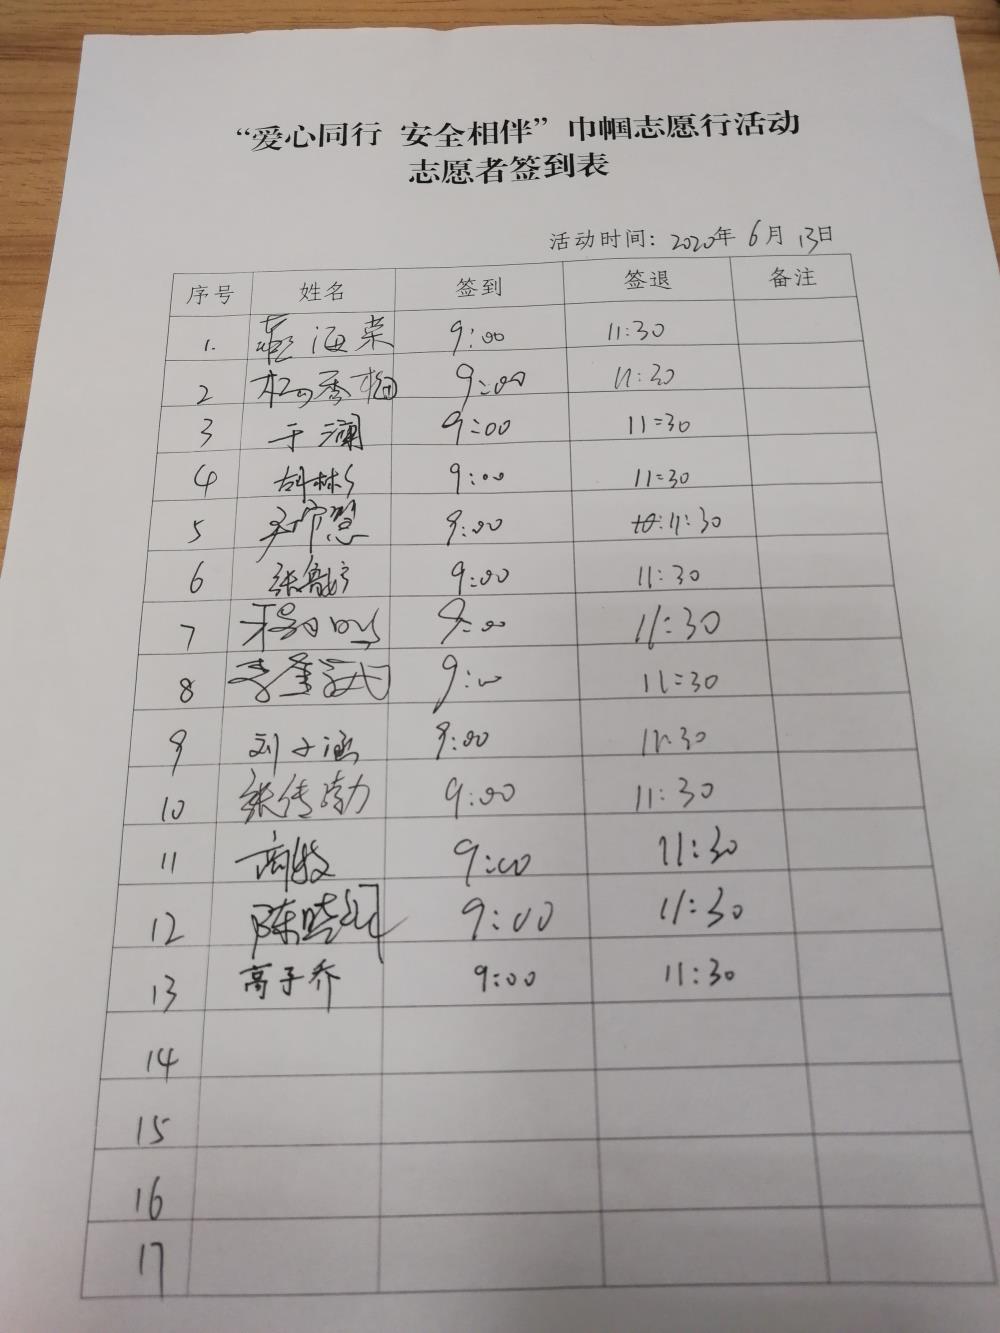 “爱心同行 安全相伴”巾帼志愿行活动
志愿者签到表
活动时间：2020年 6月 13日
序号 姓名 签到 签退 备注
1. 海荣 9:00 11:30
2 杨秀梅 9:00 11:30
3 于澜 9:00 11:30
4 胡彬 9:00 11:30
5 尹宁慧 9:00 11:30
6 张 9:00 11:30
7 9:00 11:30
8 李 9:00 11:30
9 刘子涵 9:00 11:30
10 张传勃 9:00 11:30
11 高 9:00 11:30
12 陈晓 9:00 11:30
13 高子乔 9:00 11:30
14
15
16
17